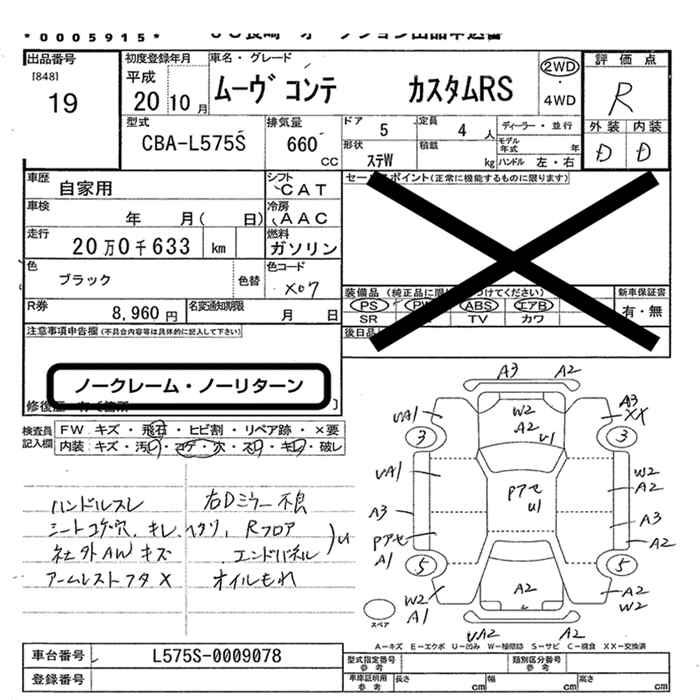 *0005915*
出品番号
[848]
19
初度登録年月
平成
20 10月
車名・グレード
ムーヴ コンテ カスタムRS
2WD
・
4WD
評価点
R
外装 内装
D D
型式
CBA-L575S
排気量
660
CC
ドア
5
定員
4 人
ディーラー・並行
形状
ステW
積載
kg
モデル
年式
年
ハンドル 左・右
車歴
自家用
シフト
CAT
車検
年 月( 日)
冷房
AAC
走行
20万0千633 km
燃料
ガソリン
色
ブラック
色替
色コード
X07
R券
8,960 円
名変通知期限
月 日
注意事項申告欄(不具合内容等は具体的に記入して下さい)
ノークレーム・ノーリターン
(正常に機能するものに限ります)
装備品
PS
ABS
エアB
SR
TV
カワ
新車保証書
有・無
検査員
記入欄
FW キズ・飛石・ヒビ割・リペア跡・×要
内装 キズ・汚レ・コゲ・穴・スレ・キレ・破レ
ハンドルスレ
シートコゲ穴、キレ、ヘタリ、
社外AWキズ
アームレストフタX
右Dミラー不良
Rフロア
エンドパネル
U1
オイルもれ
A3 A2
UA1
W2
A2
U1
A3
XX
3
3
UA1
Pアセ
U1
W2
A2
A3
A3
PアセA1
A2
5
5
W2
A1
A2
A2
W2
UA2
A2
スペア
A-キズ E-エクボ U-凹み W-補修跡 S-サビ C-腐食 XX-交換済
車台番号
L575S-0009078
登録番号
型式指定番号
参考
類別区分番号
参考
車庫証明用
参考
長さ
cm
幅
cm
高さ
cm